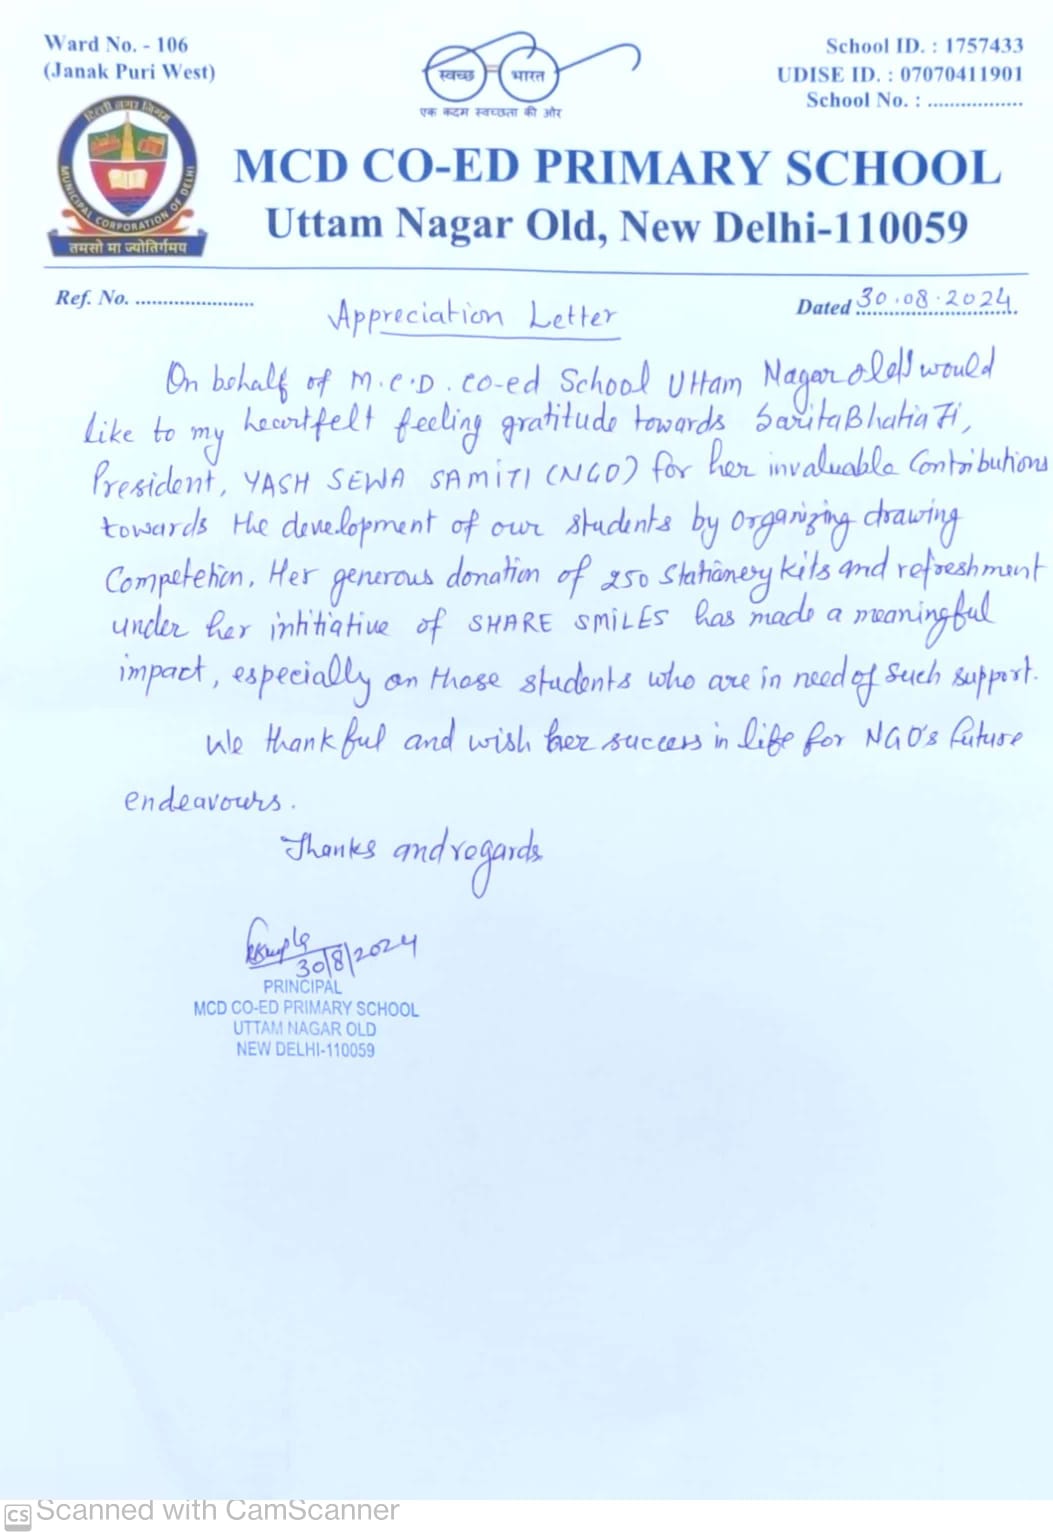 Ward No. - 106
(Janak Puri West)
स्वच्छ भारत
एक कदम स्वच्छता की ओर
School ID. : 1757433
UDISE ID. : 07070411901
School No. : .................
दिल्ली नगर निगम
MUNICIPAL CORPORATION OF DELHI
तमसो मा ज्योतिर्गमय
MCD CO-ED PRIMARY SCHOOL
Uttam Nagar Old, New Delhi-110059
Ref. No. ......................
Dated 30.08.2024
Appreciation Letter
On behalf of M.C.D. co-ed School Uttam Nagar old I would
like to my heartfelt feeling gratitude towards Sarita Bhatia Ji,
President, YASH SEWA SAMITI (NGO) for her invaluable Contributions
towards the development of our students by organizing drawing
Competetion. Her generous donation of 250 Stationery kits and refreshment
under her intitiative of SHARE SMILES has made a meaningful
impact, especially on those students who are in need of such support.
We thankful and wish her success in life for NGO's future
endeavours.
Thanks and regards
30/8/2024
PRINCIPAL
MCD CO-ED PRIMARY SCHOOL
UTTAM NAGAR OLD
NEW DELHI-110059
CS Scanned with CamScanner